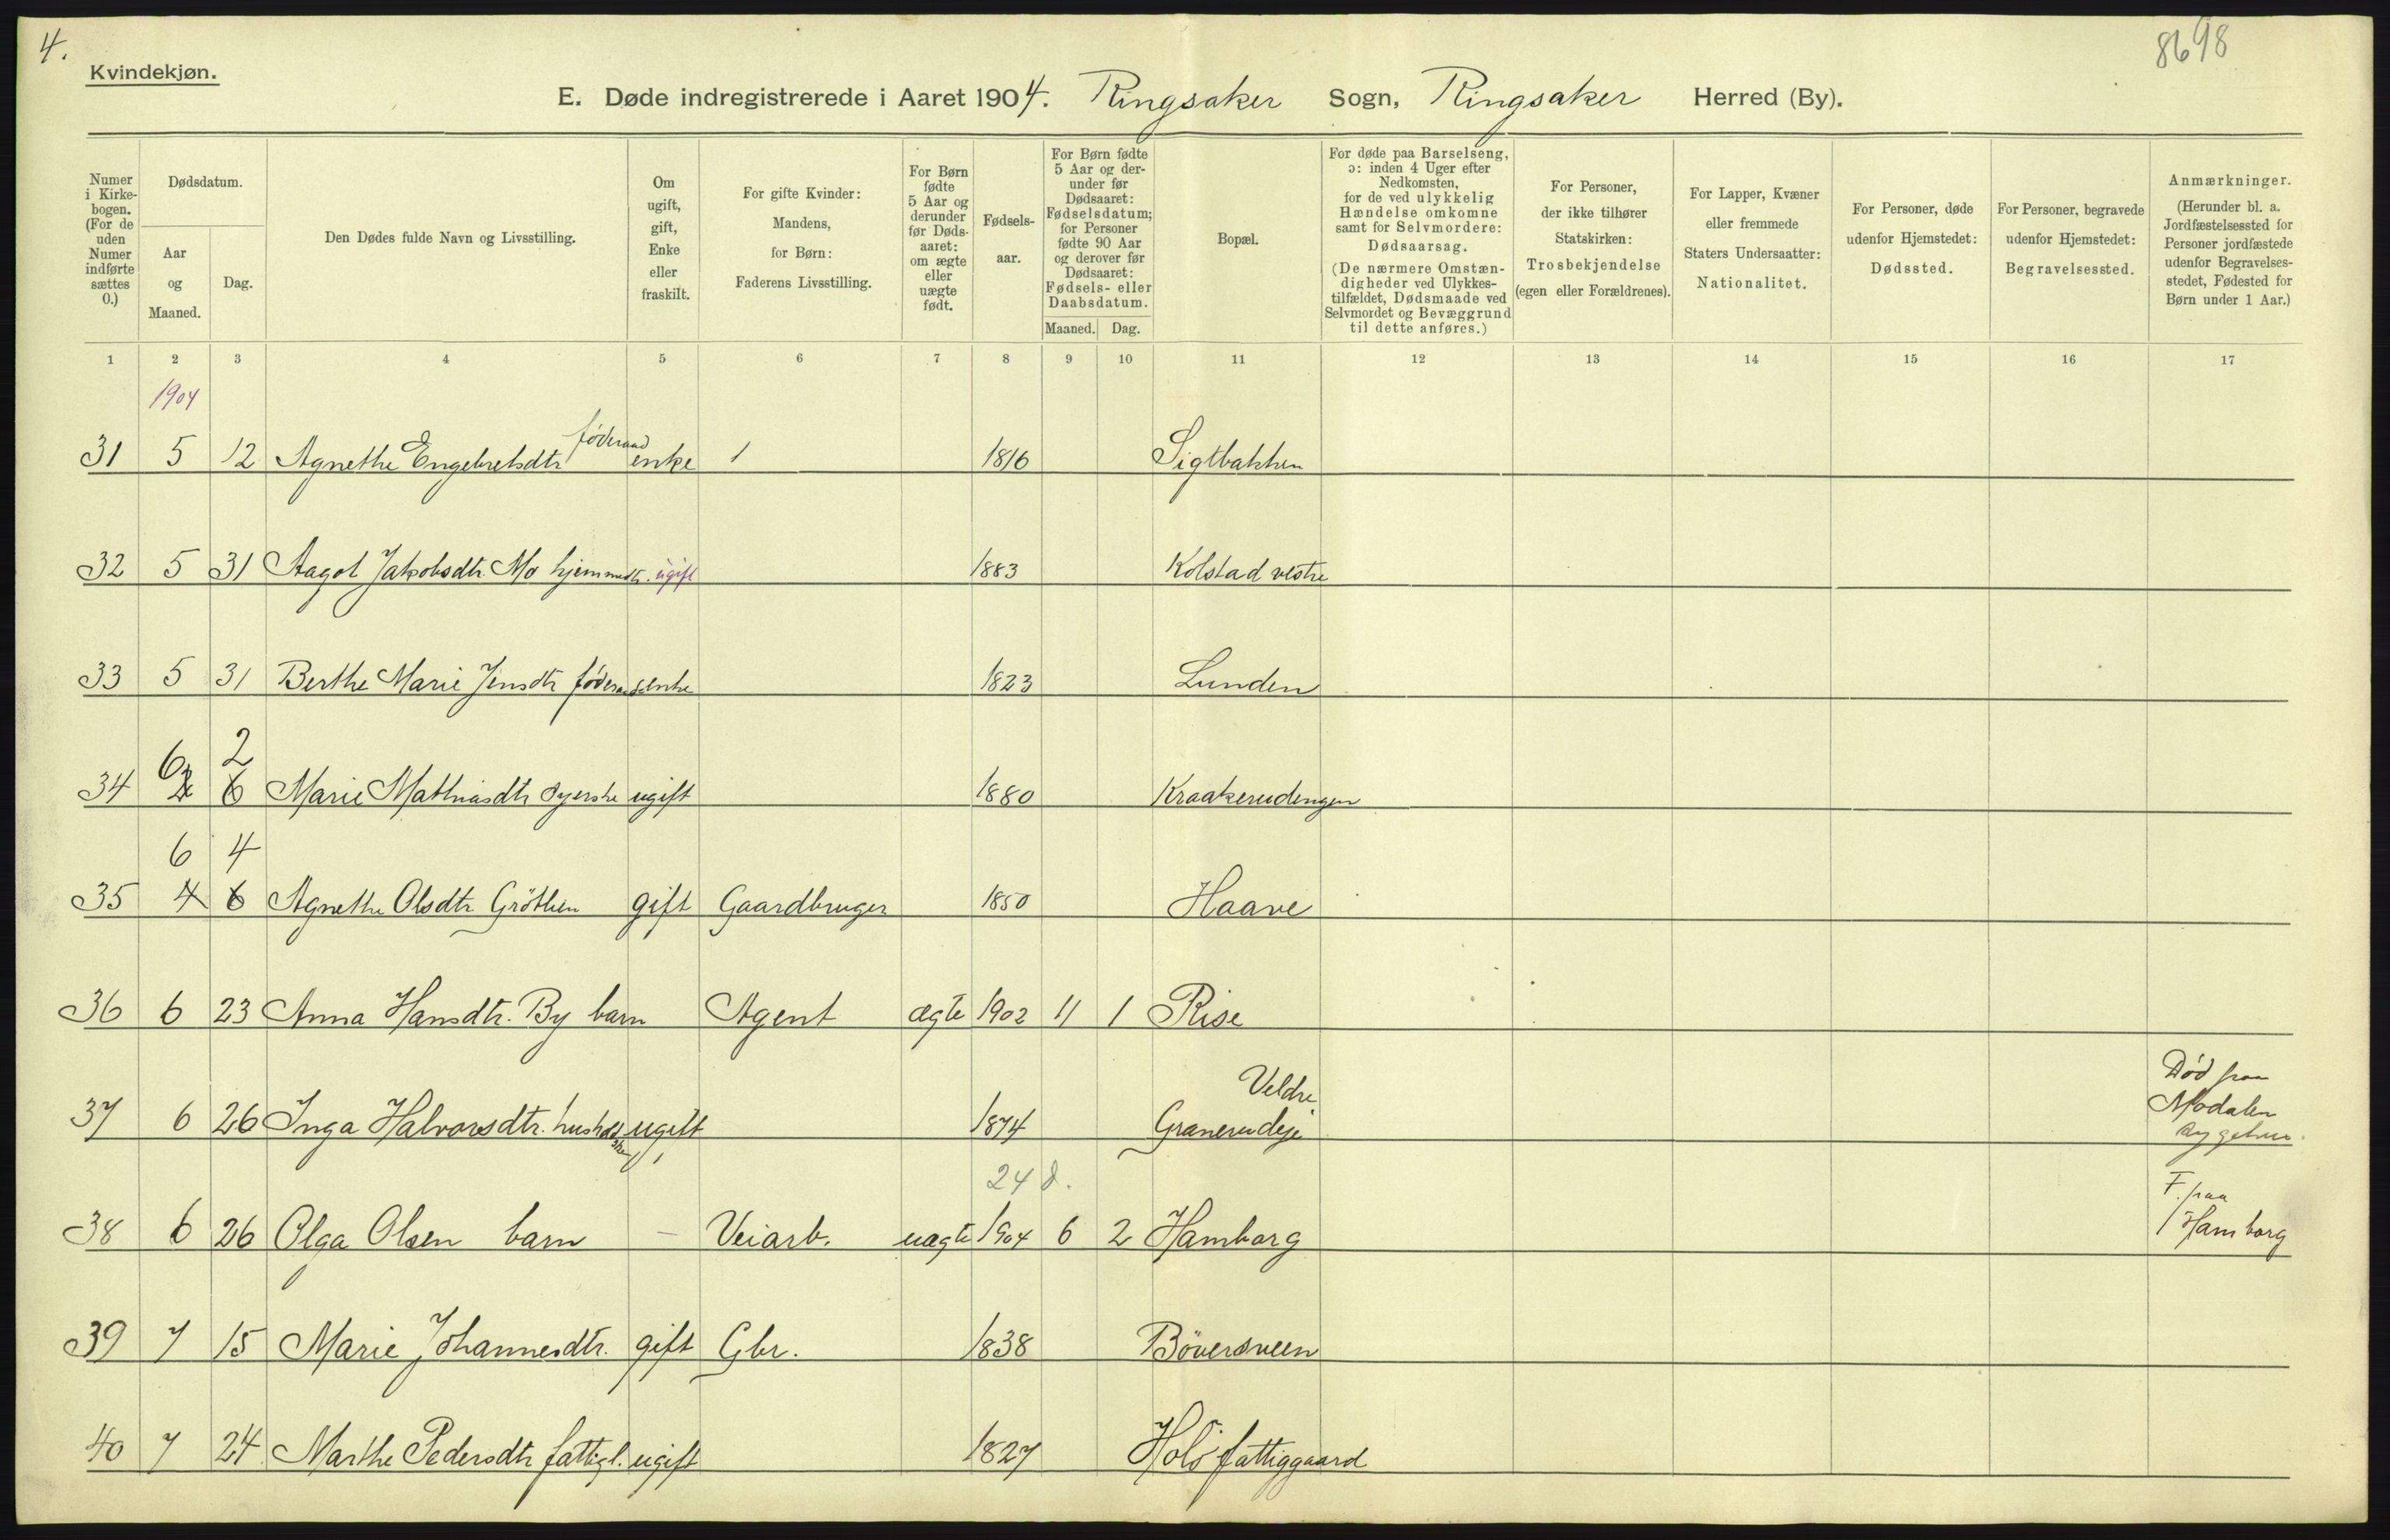 4.
8698
Kvindekjøn.
E. Døde indregistrerede i Aaret 1904. Ringsaker Sogn, Ringsaker Herred (By).
Numer i Kirke-bogen. (For de uden Numer indførte sættes 0.)
Dødsdatum.
Aar og Maaned.
Dag.
Den Dødes fulde Navn og Livsstilling.
Om ugift, gift, Enke eller fraskilt.
For gifte Kvinder: Mandens, for Børn: Faderens Livsstilling.
For Børn fødte 5 Aar og derunder før Døds-aaret: om ægte eller uægte født.
Fødsels-aar.
For Børn fødte 5 Aar og der-under før Dødsaaret: Fødselsdatum; for Personer fødte 90 Aar og derover før Dødsaaret: Fødsels- eller Daabsdatum.
Maaned. Dag.
Bopæl.
For døde paa Barselseng, ɔ: inden 4 Uger efter Nedkomsten, for de ved ulykkelig Hændelse omkomne samt for Selvmordere: Dødsaarsag. (De nærmere Omstæn-digheder ved Ulykkes-tilfældet, Dødsmaade ved Selvmordet og Bevæggrund til dette anføres.)
For Personer, der ikke tilhører Statskirken: Trosbekjendelse (egen eller Forældrenes).
For Lapper, Kvæner eller fremmede Staters Undersaatter: Nationalitet.
For Personer, døde udenfor Hjemstedet: Dødssted.
For Personer, begravede udenfor Hjemstedet: Begravelsessted.
Anmærkninger. (Herunder bl. a. Jordfæstelsessted for Personer jordfæstede udenfor Begravelses-stedet, Fødested for Børn under 1 Aar.)
1 2 3 4 5 6 7 8 9 10 11 12 13 14 15 16 17
1904
31 5 12 Agnethe Engebretsdtr føderaad enke 1 1816 Sigtbakken
32 5 31 Aagot Jakobsdtr. Mo hjemmedtr. ugift 1883 Kolstad vestre
33 5 31 Berthe Marie Jensdtr føderaadsenke 1823 Lunden
6 2
34 2 6 Marie Mathiasdtr syerske ugift 1880 Kraakerudengen
6 4
35 4 6 Agnethe Olsdtr Gröthen gift Gaardbruger 1850 Haave
36 6 23 Anna Hansdtr. By barn Agent ægte 1902 11 1 Rise
Veldre Død paa
37 6 26 Inga Halvorsdtr. hushold ugift 1874 Granerudeje Modalen
sygehus.
24 d. F. paa
38 6 26 Olga Olsen barn – Veiarb. uægte 1904 6 2 Hamborg Hamborg
39 7 15 Marie Johannesdtr. gift Gbr. 1838 Böversveen
40 7 24 Marthe Pedersdtr fattigl. ugift 1827 Hols fattiggaard